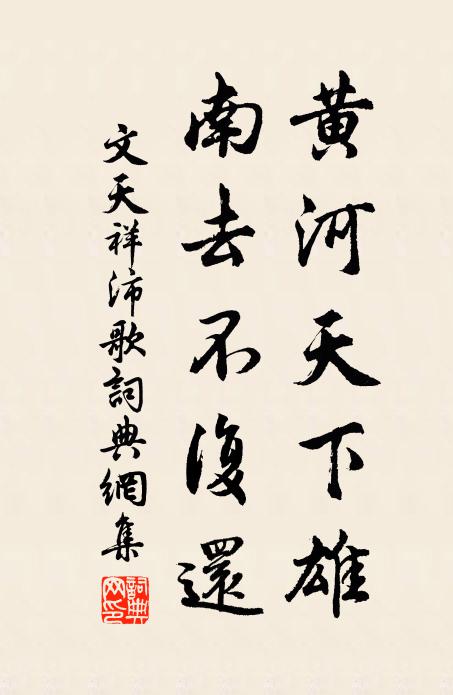 黃河天下雄
南去不復還
文天祥沛歌詞典網集
詞典網印